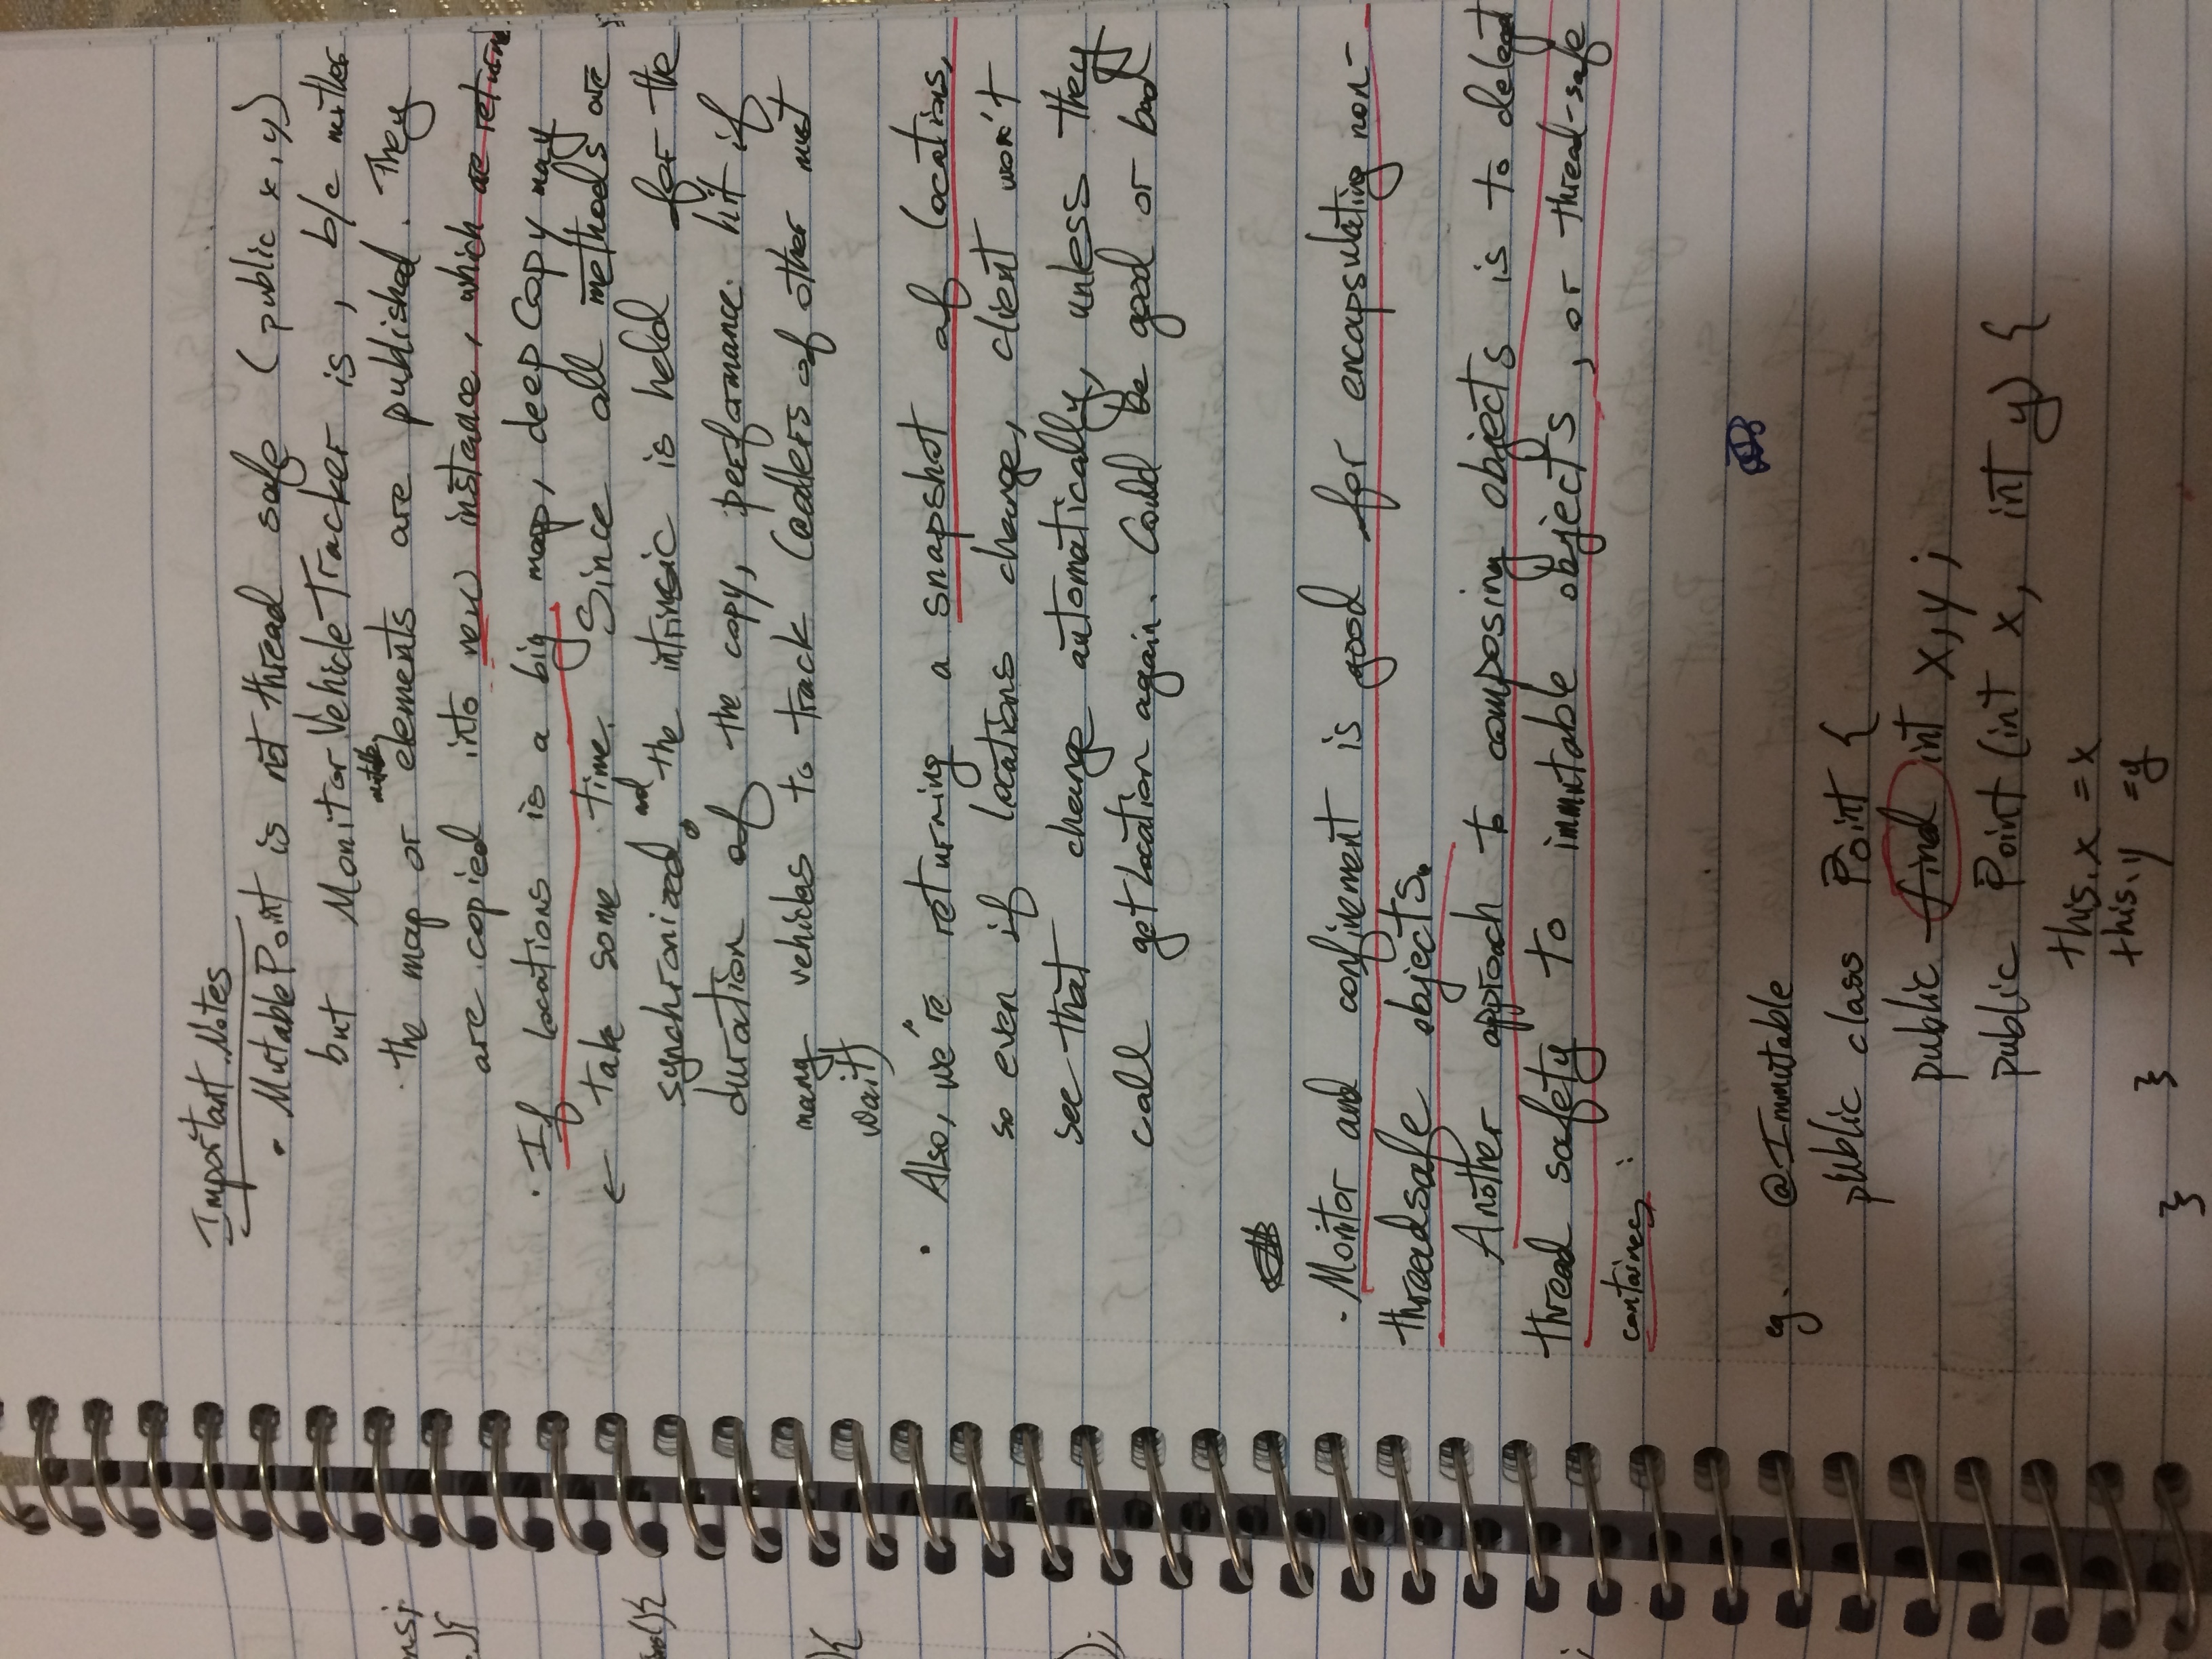 nsj
.){
ons(){
){
);
;
Important Notes
• MutablePoint is not thread safe (public x, y)
but MonitorVehicleTracker is, b/c neither
the map or mutable elements are published. They
are copied into new instance, which are returned.
• If locations is a big map, deepCopy may
← take some time. Since all methods are
synchronized, and the intrinsic is held for the
duration of the copy, performance hit if
many vehicles to track (callers of other must
wait)
• Also, we're returning a snapshot of locations,
so even if locations change, client won't
see that change automatically, unless they
call getLocation again. Could be good or bad
- Monitor and confinement is good for encapsulating non-
threadsafe objects.
Another approach to composing objects is to delegat
thread safety to immutable objects, or thread-safe
containers :
eg. @Immutable
public class Point {
public final int x, y ;
public Point (int x, int y) {
this.x = x
this.y = y
}
}